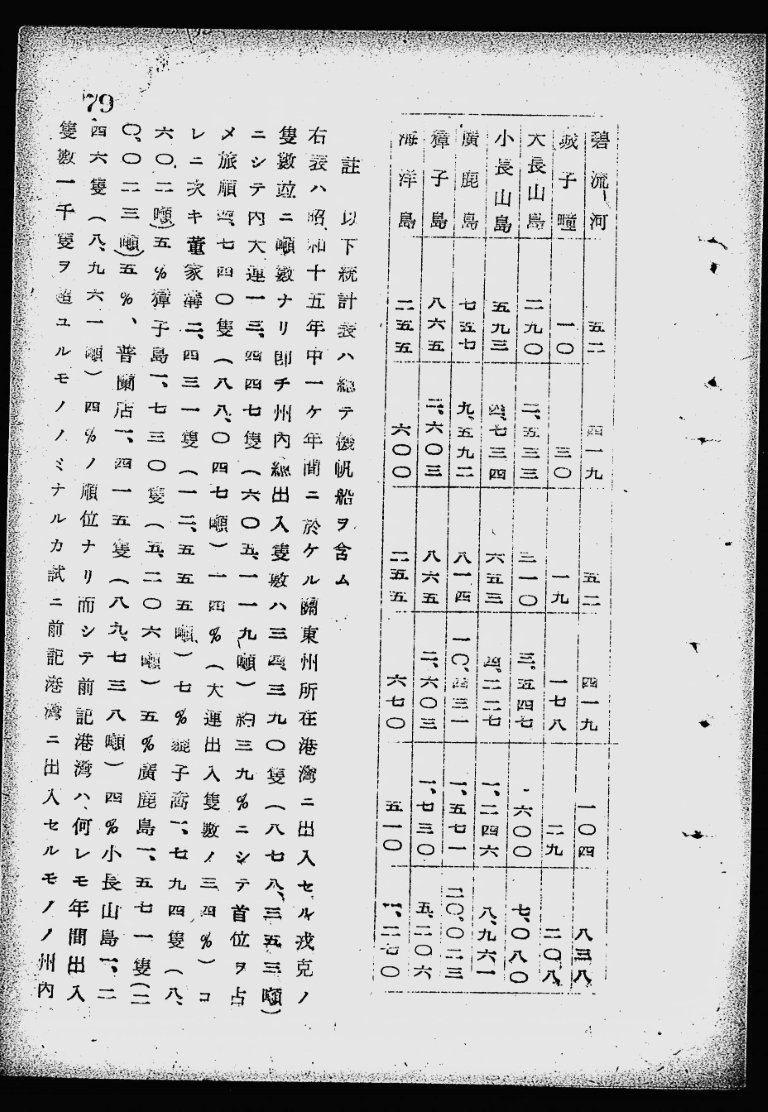 碧流河 五二 四一九 五二 四一九 一〇四 八三八
城子疃 一〇 三〇 一九 一七八 二九 二〇八
大長山島 二九〇 二、五三三 三一〇 三、五四七 六〇〇 七、〇八〇
小長山島 五九三 四、七三四 六五三 四、二二七 一、二四六 八、九六一
廣鹿島 七五七 九、五九二 八一四 一〇、四三一 一、五七一 二〇、〇二三
獐子島 八六五 二、六〇三 八六五 二、六〇三 一、七三〇 五、二〇六
海洋島 二五五 六〇〇 二五五 六七〇 五一〇 一、二七〇
註 以下統計表ハ總テ機帆船ヲ含ム
右表ハ昭和十五年中一ケ年間ニ於ケル關東州所在港灣ニ出入セル戎克ノ
隻數竝ニ噸數ナリ卽チ州內總出入隻數ハ三四、三九〇隻(八七八、三五三噸)
ニシテ內大連一三、四四七隻(六〇五、一一九噸)約三九%ニシテ首位ヲ占
メ旅順四、七四〇隻(八八、〇四七噸)一四%(大連出入隻數ノ三四%)コ
レニ次キ董家溝二、四三一隻(一二、五五五噸)七%貔子窩一、七九四隻(八、
六〇二噸)五%獐子島一、七三〇隻(五、二〇六噸)五%廣鹿島一、五七一隻(二
〇、〇二三噸)五%、普蘭店一、四一五隻(八九、七三八噸)四%小長山島一、二
四六隻(八、九六一噸)四%ノ順位ナリ而シテ前記港灣ハ何レモ年間出入
隻數一千隻ヲ超ユルモノノミナルカ試ニ前記港灣ニ出入セルモノノ州內
79